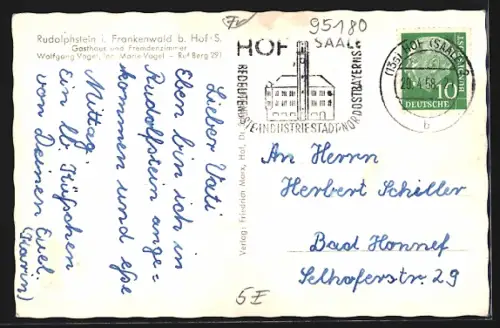 Rudolphstein i. Frankenwald b. Hof-S.
Gasthaus und Fremdenzimmer
Wolfgang Vogel, Inh. Marie Vogel - Ruf Berg 291
Lieber Vati
Eben bin ich in
Rudolfstein ange=
kommen und esse
Mittag.
Ein lb. Küßchen
von Deinem Eusel.
(Karin)
Verlag: Friedrich Marx, Hof,
95180
HOF SAALE
BEDEUTENDSTE INDUSTRIESTADT NORDOSTBAYERNS
(13a) HOF (SAALE) 2
58
b
10
DEUTSCHE
An Herrn
Herbert Schiller
Bad Honnef
Selhoferstr. 29
5E